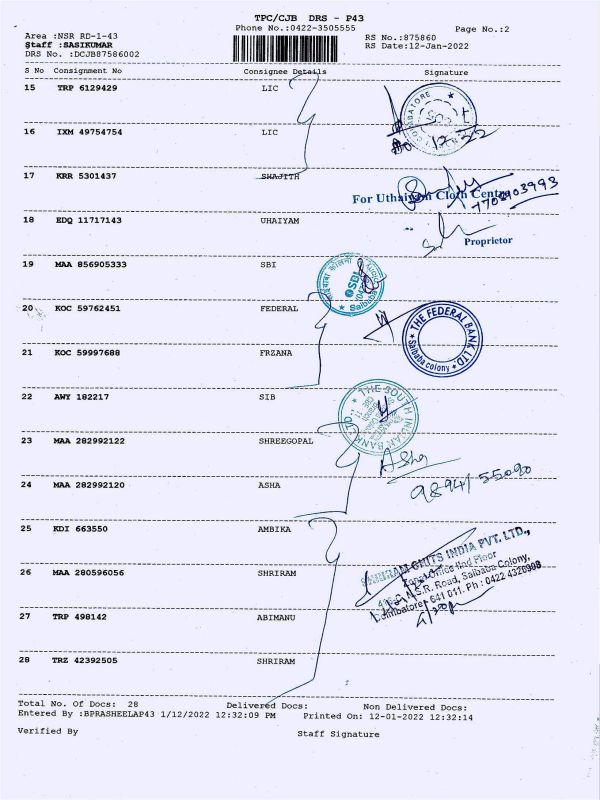 TPC/CJB DRS - P43
Phone No.:0422-3505555
Page No.:2
Area :NSR RD-1-43
RS No.:875860
Staff :SASIKUMAR
RS Date:12-Jan-2022
DRS No. :DCJB87586002
S No Consignment No Consignee Details Signature
15 TRP 6129429 LIC
16 IXM 49754754 LIC
17 KRR 5301437 SHAJITH
For Uthaiyam Cloth Centre
7708903993
18 EDQ 11717143 UHAIYAM
Proprietor
19 MAA 856905333 SBI
SBI
Saibaba
20 KOC 59762451 FEDERAL
THE FEDERAL BANK LTD.
Saibaba colony
21 KOC 59997688 FRZANA
22 AWY 182217 SIB
THE SOUTH INDIAN BANK LTD.
23 MAA 282992122 SHREEGOPAL
Asha
24 MAA 282992120 ASHA
98941 55090
25 KDI 663550 AMBIKA
SHRIRAM CHITS INDIA PVT. LTD.,
Zonal Office IInd Floor
N.S.R. Road, Saibaba Colony,
Coimbatore - 641 011. Ph : 0422 4320998
26 MAA 280596056 SHRIRAM
27 TRP 498142 ABIMANU
28 TRZ 42392505 SHRIRAM
Total No. Of Docs: 28 Delivered Docs: Non Delivered Docs:
Entered By :BPRASHEELAP43 1/12/2022 12:32:09 PM Printed On: 12-01-2022 12:32:14
Verified By Staff Signature